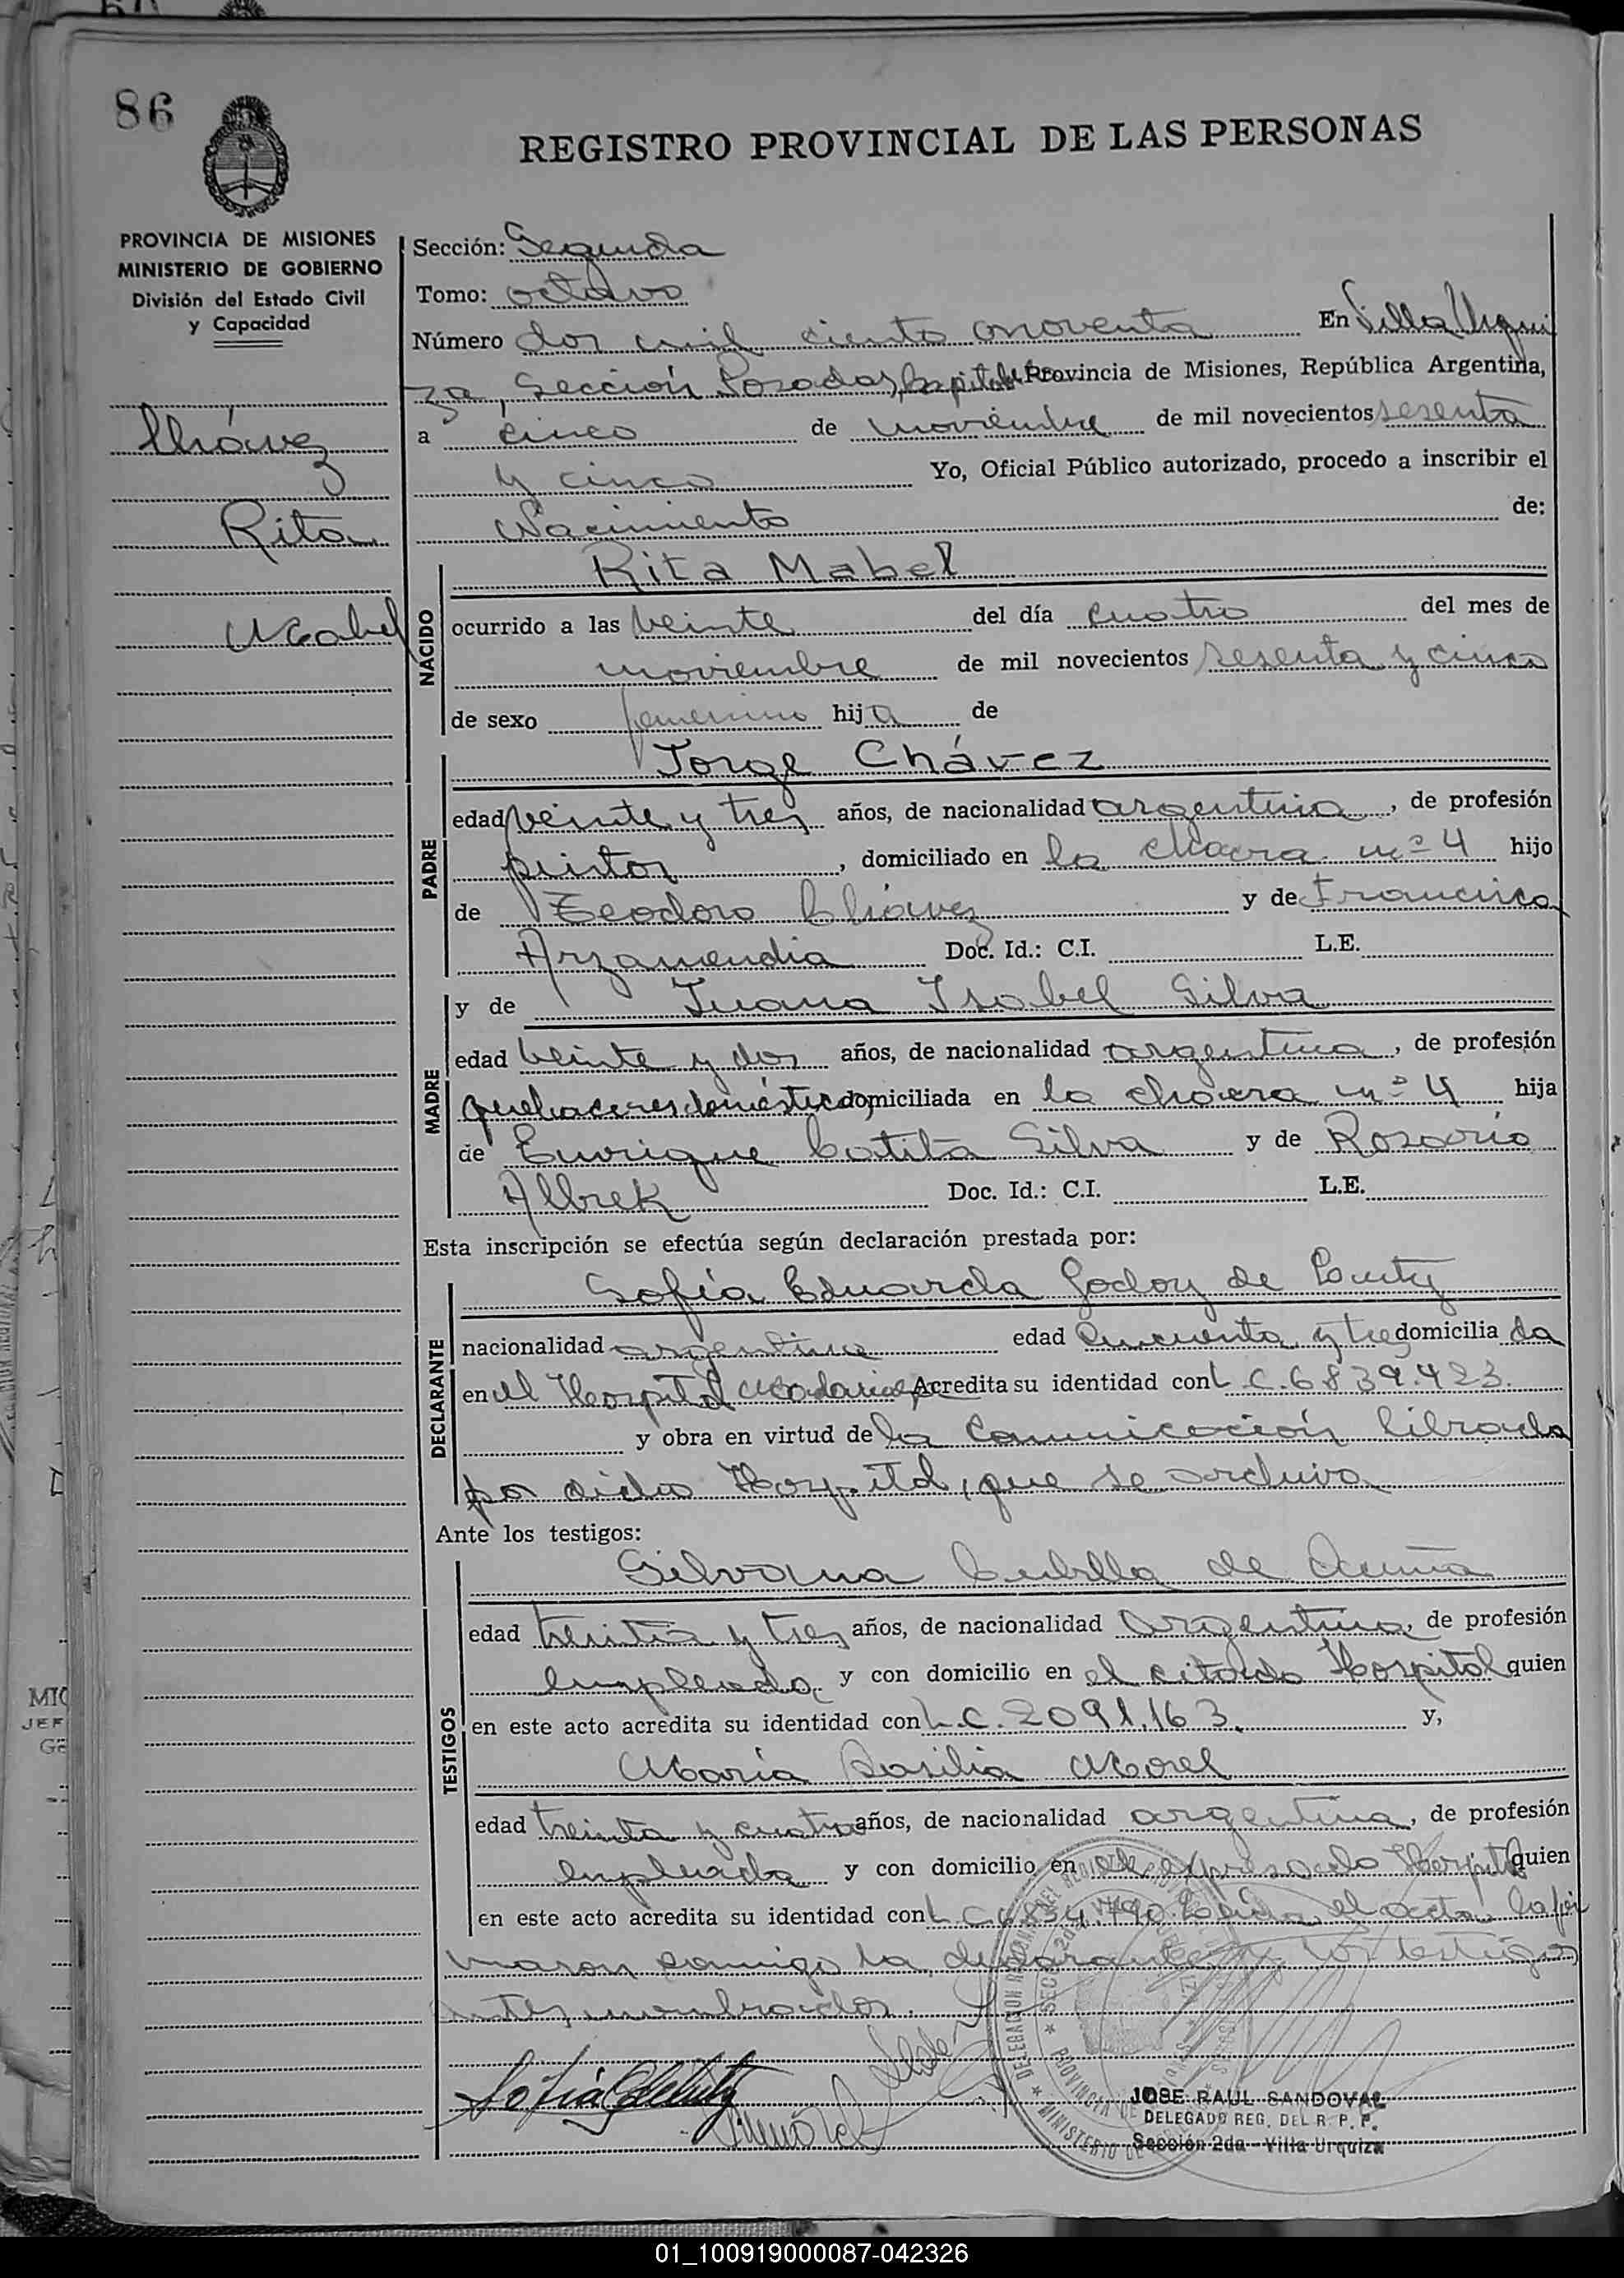 86
REGISTRO PROVINCIAL DE LAS PERSONAS
PROVINCIA DE MISIONES
MINISTERIO DE GOBIERNO
División del Estado Civil
y Capacidad
Chávez
Rita
Mabel
Sección: Segunda
Tomo: octavo
Número dos mil ciento noventa En Villa Urqui
za, Sección Posadas, Capital Provincia de Misiones, República Argentina,
a cinco de noviembre de mil novecientos sesenta
y cinco Yo, Oficial Público autorizado, procedo a inscribir el
Nacimiento de:
NACIDO
Rita Mabel
ocurrido a las veinte del día cuatro del mes de
noviembre de mil novecientos sesenta y cinco
de sexo femenino hija de
PADRE
Jorge Chávez
edad veinte y tres años, de nacionalidad argentina, de profesión
pintor, domiciliado en la chacra nº 4 hijo
de Teodoro Chávez y de Francisca
Arzamendia Doc. Id.: C.I. L.E.
MADRE
y de Juana Isabel Silva
edad veinte y dos años, de nacionalidad argentina, de profesión
quehaceres domésticos domiciliada en la chacra nº 4 hija
de Enrique Catita Silva y de Rosario
Albrek Doc. Id.: C.I. L.E.
Esta inscripción se efectúa según declaración prestada por:
DECLARANTE
Sofía Eduarda Godoy de
nacionalidad argentina edad cincuenta y tres domiciliada
en el Hospital Madariaga Acredita su identidad con L.C. 6839.423.
y obra en virtud de la comunicación librada
por dicho Hospital, que se archiva
Ante los testigos:
TESTIGOS
Silvana de Acuña
edad treinta y tres años, de nacionalidad argentina, de profesión
empleada y con domicilio en el citado Hospital quien
en este acto acredita su identidad con L.C. 2091.163. y,
María Basilia Morel
edad treinta y cuatro años, de nacionalidad argentina, de profesión
empleada y con domicilio en el expresado Hospital quien
en este acto acredita su identidad con L.C. 6.834.790. Leída el acta la fir
maron conmigo la declarante y los testigos
antes nombrados.
JOSE RAUL SANDOVAL
DELEGADO REG. DEL R. P. P.
Sección 2da - Villa Urquiza
01_100919000087-042326